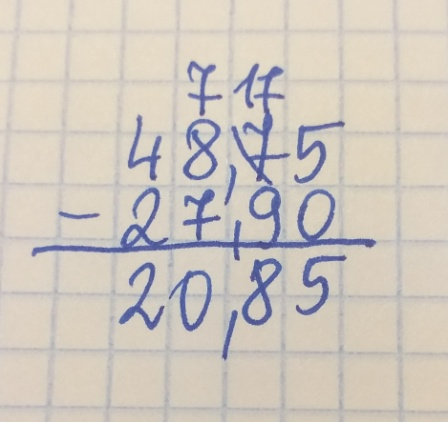 7 17
48,75
- 27,90
20,85